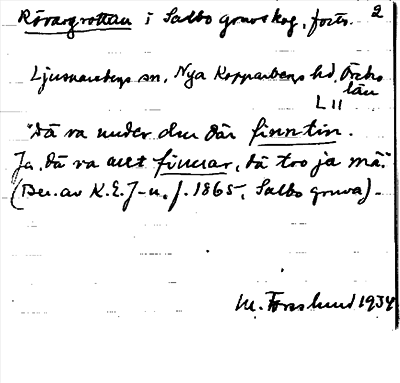 Rövargrottan i Salbo gruvskog, forts. 2
Ljusnarsbergs sn, Nya Kopparbergs hd, Örebro
län
L 11
"Dä va under den där finntin.
Ja, dä va allt finnar, dä tror ja mä."
(Ber. av K.E.J-n, f. 1865, Salbo gruva).
M. Forslund 1934